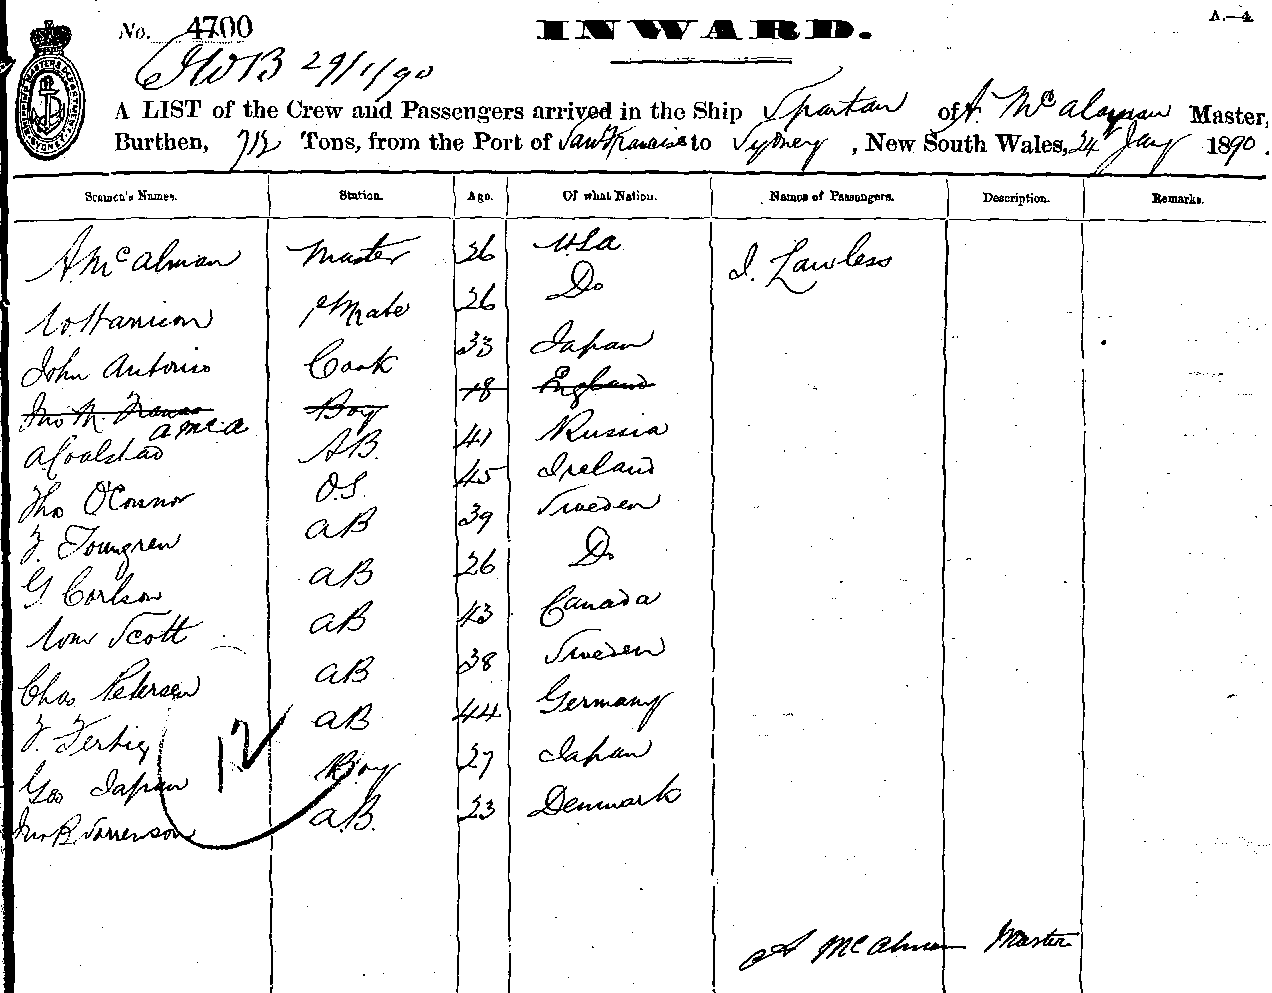 No. 4700
INWARD.
A.—4.
29/1/90
A LIST of the Crew and Passengers arrived in the Ship Spartan of A. McAlman Master,
Burthen, Tons, from the Port of San Francisco to Sydney, New South Wales, 24 Jany 1890.
Seamen's Names. Station. Age. Of what Nation. Names of Passengers. Description. Remarks.
A. McAlman Master 26 USa J. Lawless
Wm Harrison Mate 26 Do
John Antonio Cook 33 Japan
Jno Boy 18 England
aMca
AB 41 Russia
Tho O'Connor O.S. 45 Ireland
F. Toungren aB 39 Sweden
G Carlson aB 26 Do
Wm Scott aB 43 Canada
Chas Petersen aB 38 Sweden
F. Fertig aB 44 Germany
Geo Japan Boy 27 Japan
Jno B. Sorrenson a.B. 23 Denmark
12
A McAlman Master